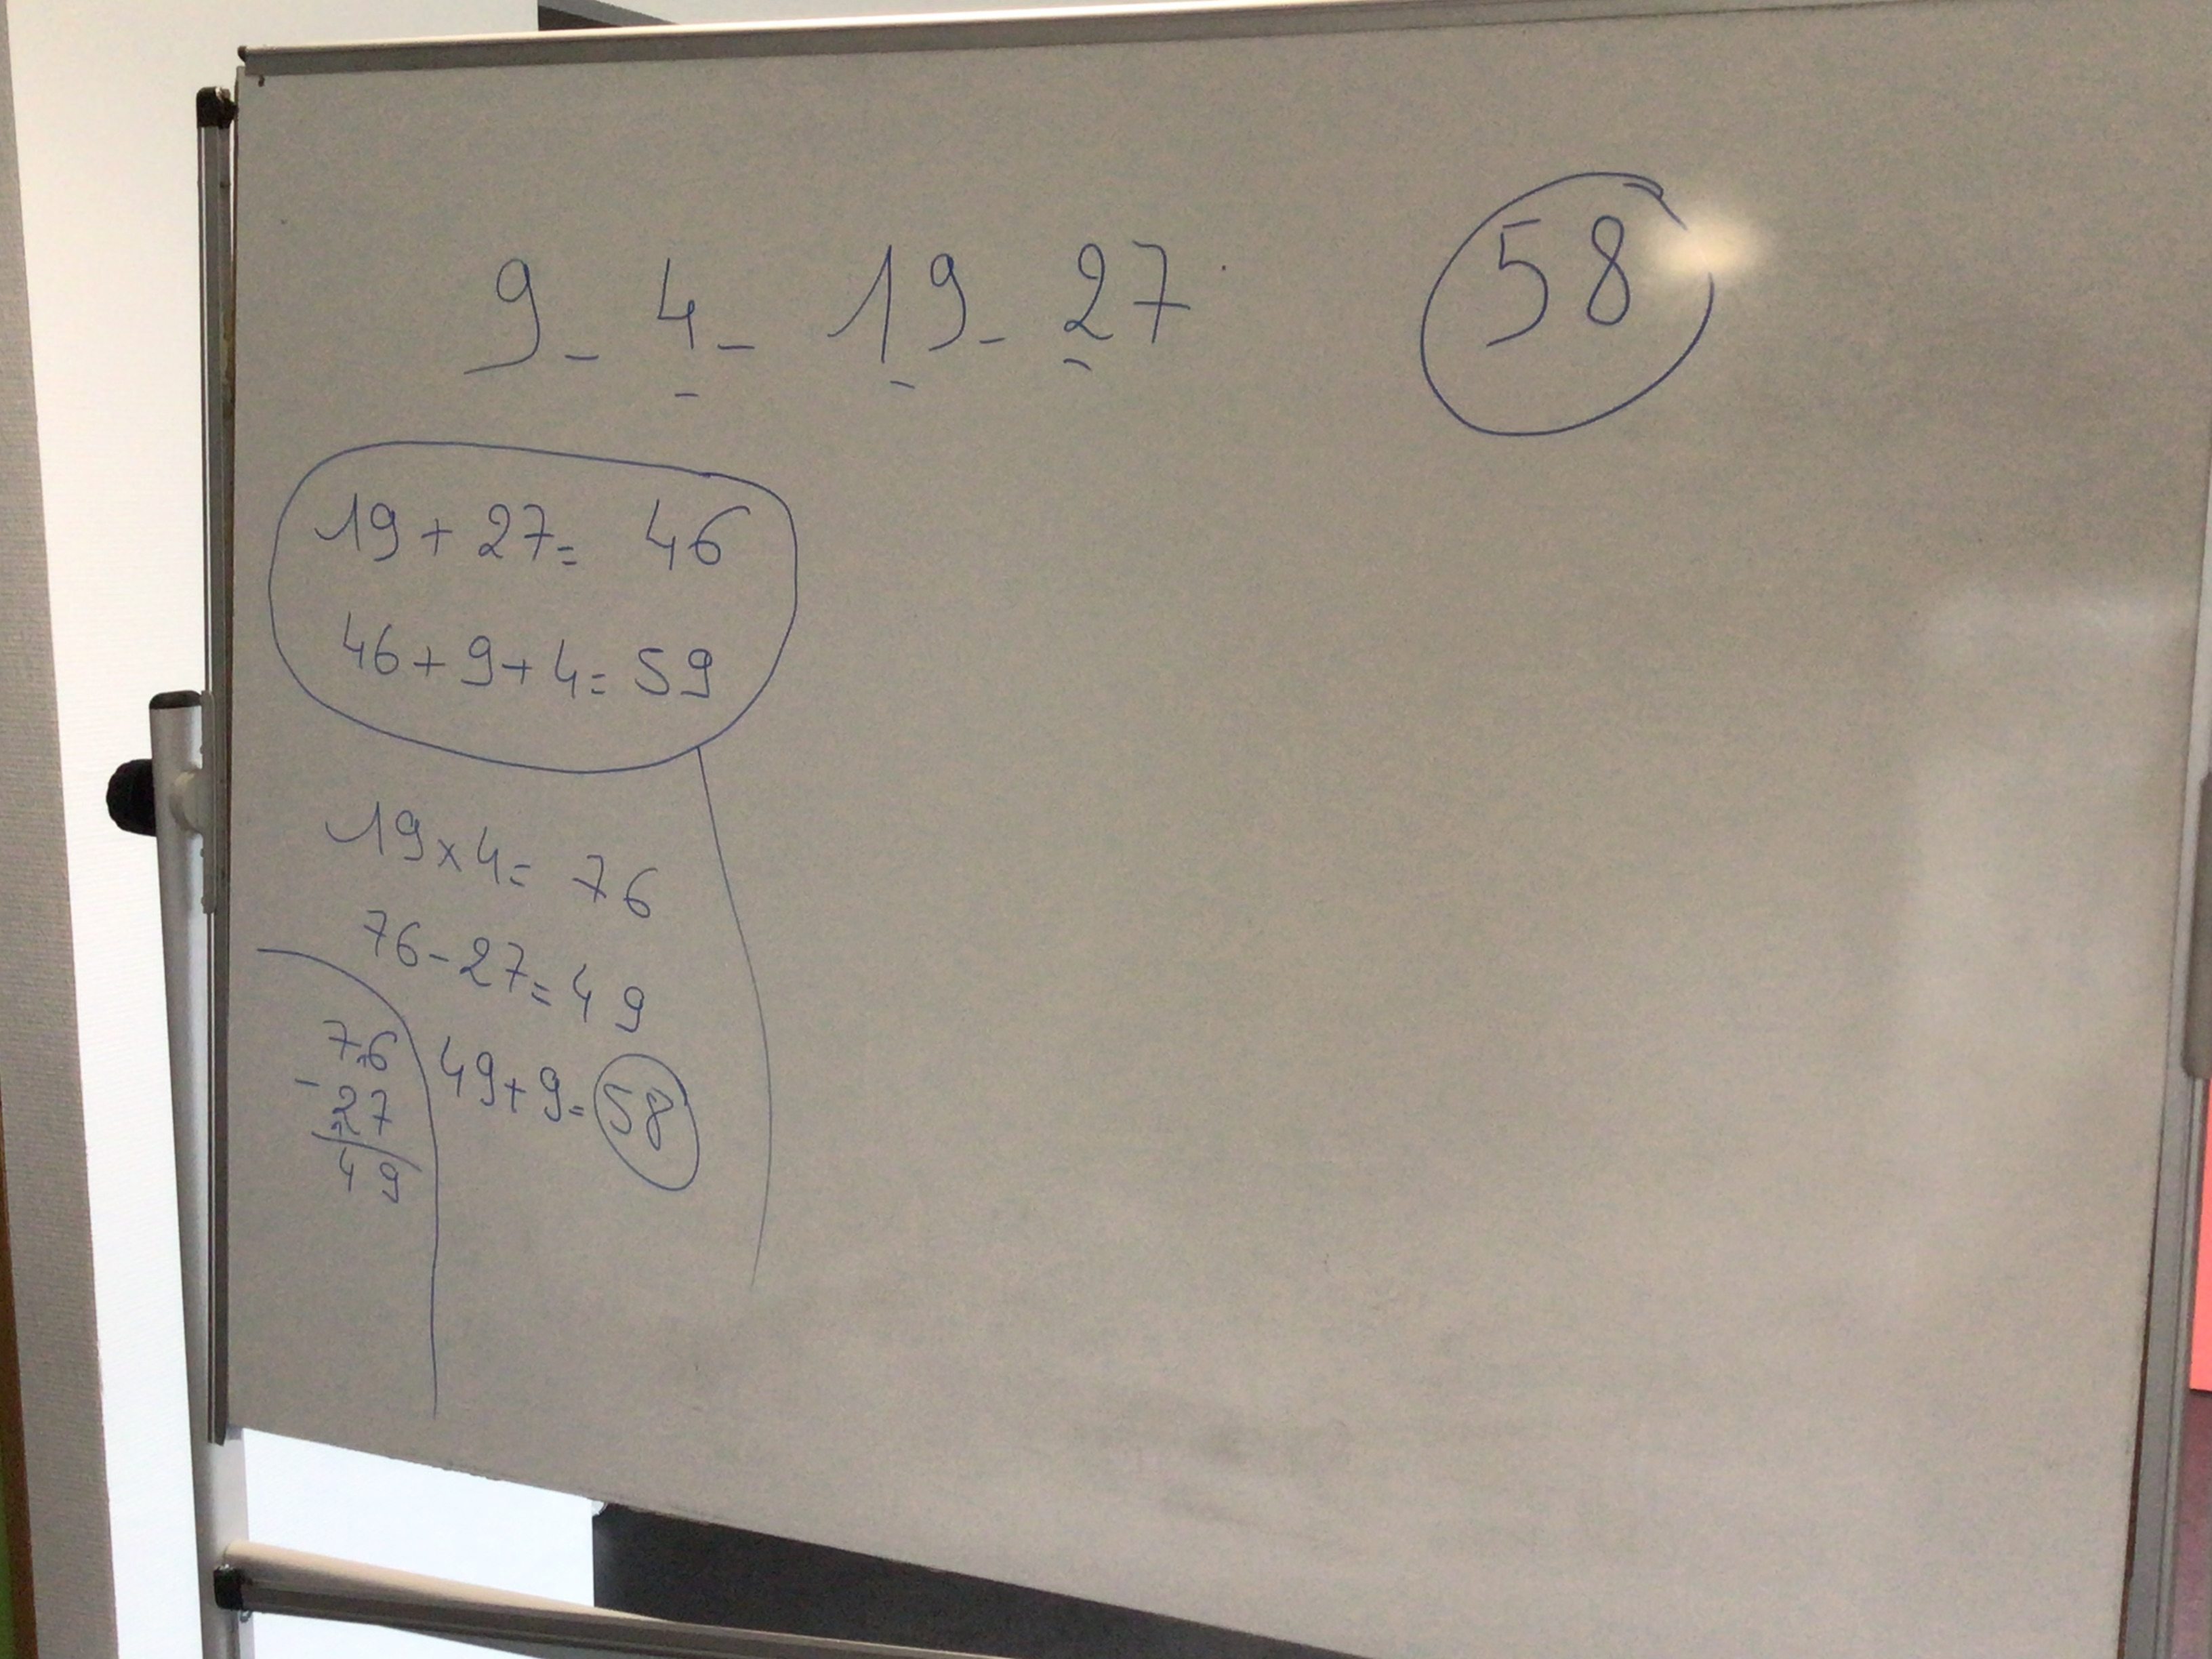 9 - 4 - 19 - 27 58
19 + 27 = 46
46 + 9 + 4 = 59
19 x 4 = 76
76 - 27 = 49
49 + 9 = 58
76
- 27
49